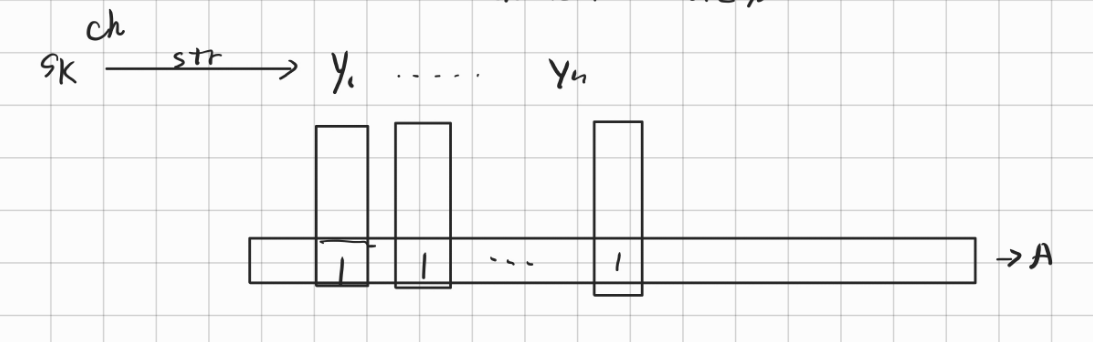 ch
sk str → y₁ ..... yₙ
1 1 ... 1 → A